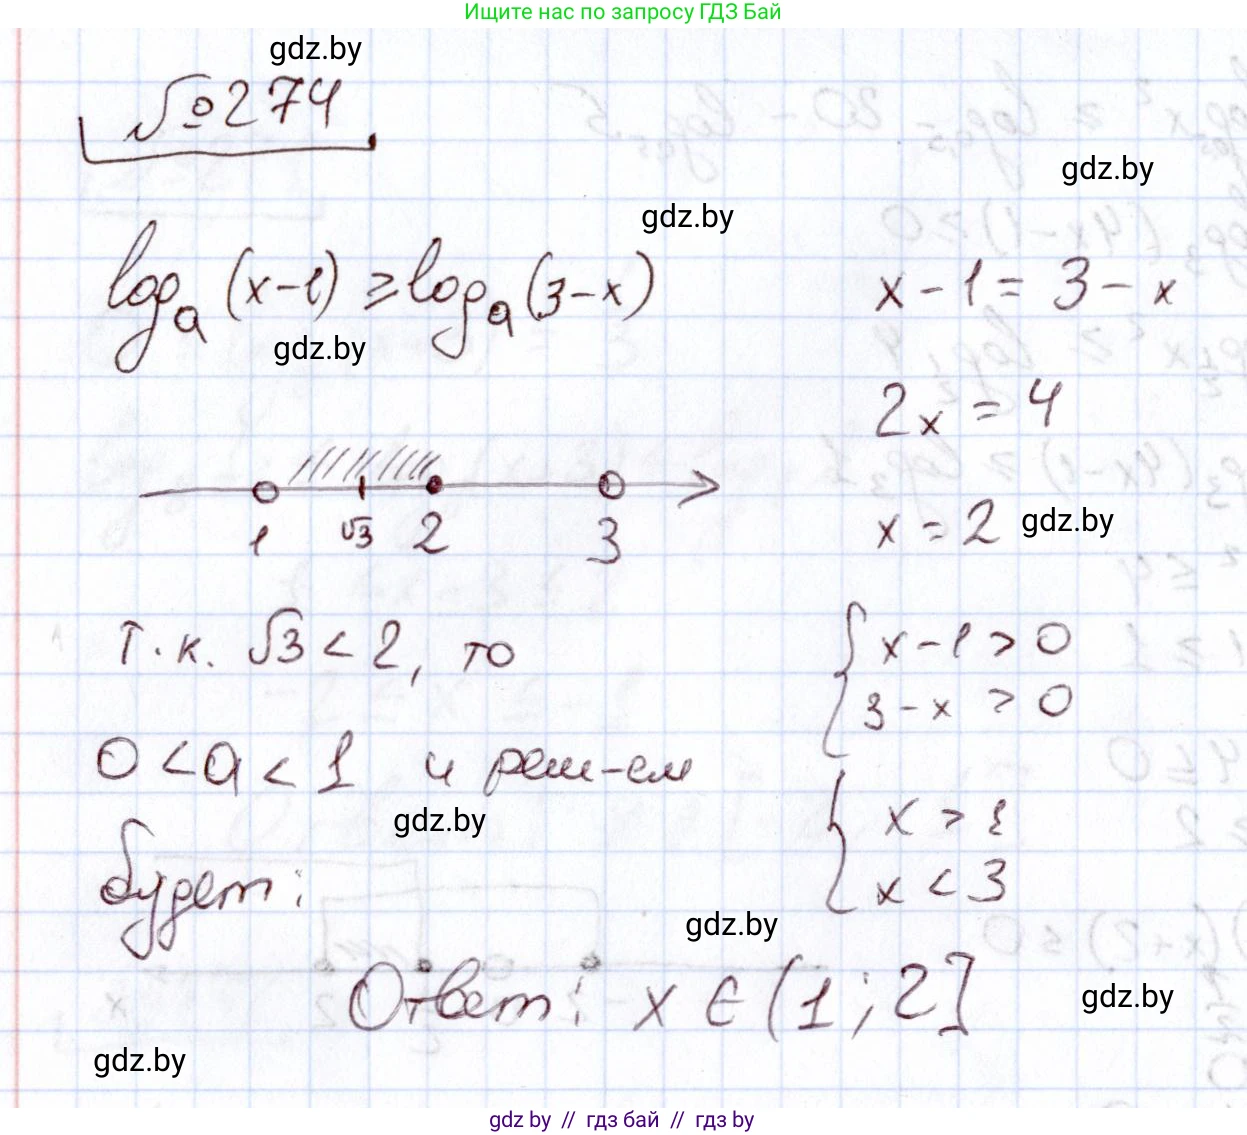 Ищите нас по запросу ГДЗ Бай
gdz.by
№274
gdz.by
gdz.by
logₐ(x-1) ≥ logₐ(3-x)
x-1 = 3-x
gdz.by
2x = 4
1 √3 2 3
x = 2
gdz.by
Т.к. √3 < 2, то
{ x-1 > 0
3-x > 0
0 < a < 1 и реш-ем
gdz.by
{ x > 1
x < 3
будет:
gdz.by
Ответ: x ∈ (1; 2]
gdz.by
gdz.by
gdz by // гдз бай // гдз by